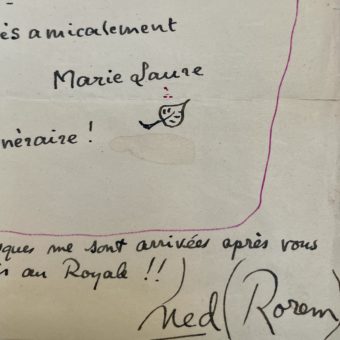 ès amicalement
Marie Laure
néraire !
ques me sont arrivées après vous
is au Royale !! )
Ned (Rorem)